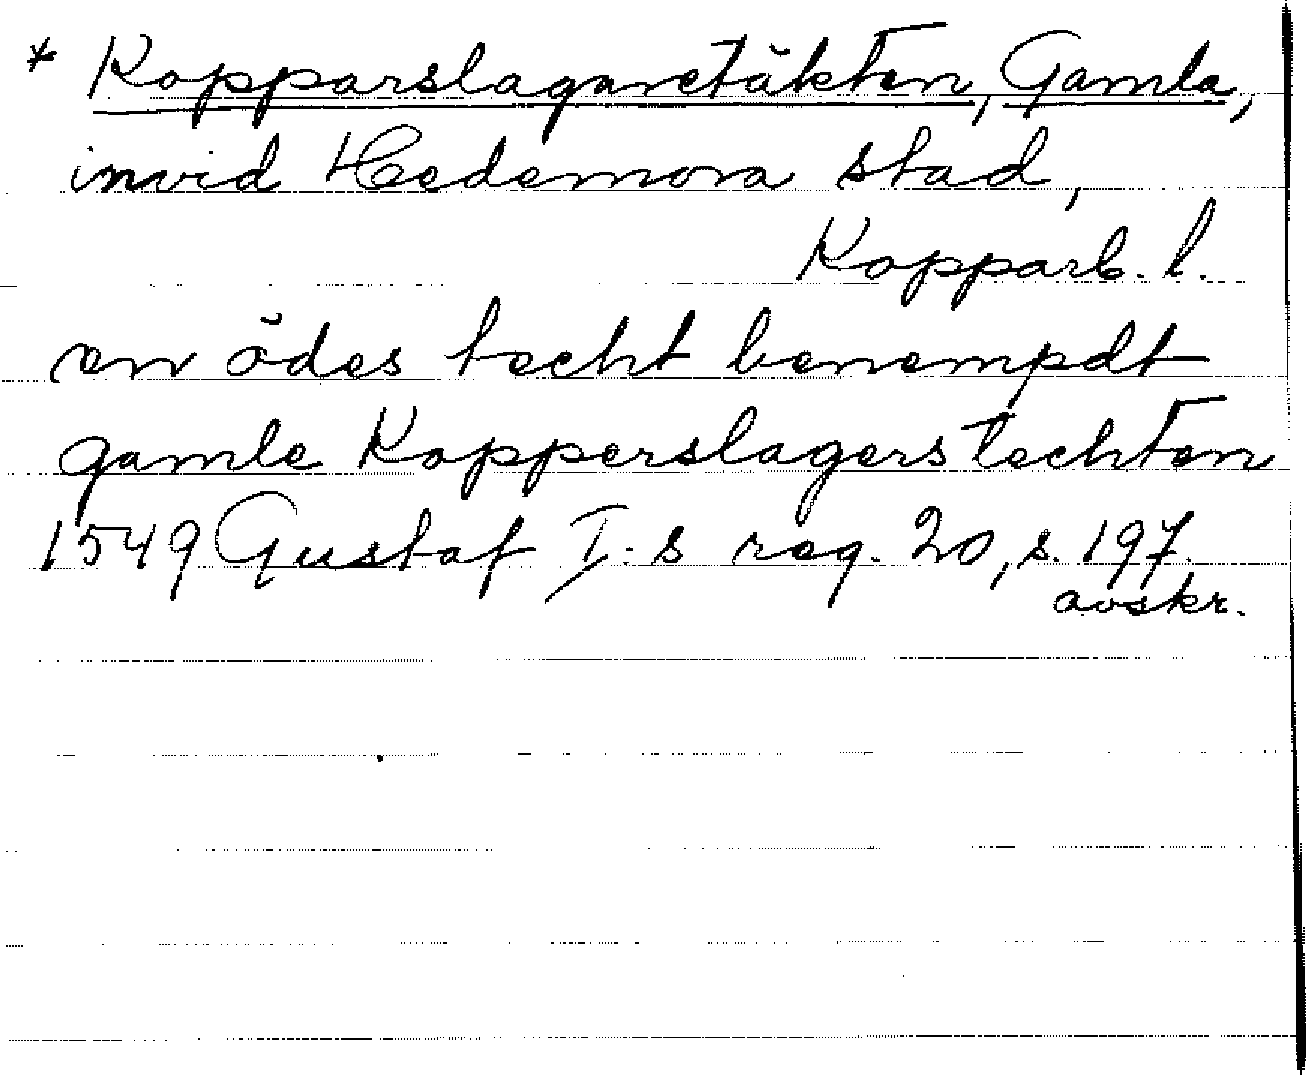 * Kopparslagaretäkten, Gamla,
invid Hedemora stad,
Kopparb. l.
en ödes techt benempdt
gamle Kopperslagers techten
1549 Gustaf I:s reg. 20, s. 197.
avskr.